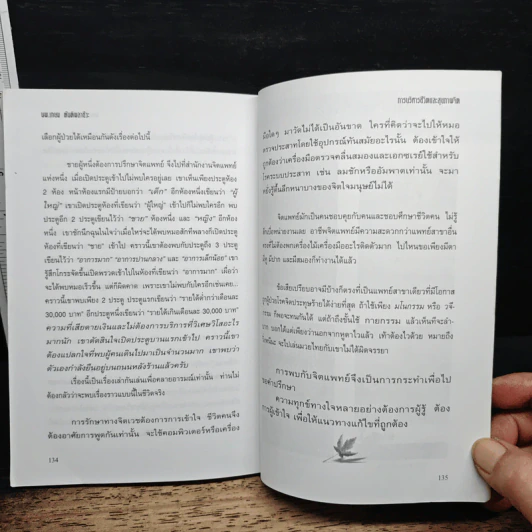 นพ.เกษม ตันติผลาชีวะ
เลือกผู้ป่วยได้เหมือนกันดังเรื่องต่อไปนี้
ชายผู้หนึ่งต้องการปรึกษาจิตแพทย์ จึงไปที่สำนักงานจิตแพทย์
แห่งหนึ่ง เมื่อเปิดประตูเข้าไปไม่พบใครอยู่เลย เขาเห็นเพียงประตูห้อง
2 ห้อง หน้าห้องแรกมีป้ายบอกว่า "เด็ก" อีกห้องหนึ่งเขียนว่า "ผู้
ใหญ่" เขาเปิดประตูห้องที่เขียนว่า "ผู้ใหญ่" เข้าไปก็ไม่พบใครอีก พบ
ประตูอีก 2 ประตูเขียนไว้ว่า "ชาย" ห้องหนึ่ง และ "หญิง" อีกห้อง
หนึ่ง เขาชักนึกฉุนในใจว่าเมื่อไหร่จะได้พบหมอสักทีหลางก็เปิดประตู
ห้องที่เขียนว่า "ชาย" เข้าไป คราวนี้เขาต้องพบกับประตูถึง 3 ประตู
เขียนไว้ว่า "อาการมาก" "อาการปานกลาง" และ "อาการเล็กน้อย" เขา
รู้สึกโกรธจัดขึ้นเปิดพรวดเข้าไปในห้องที่เขียนว่า "อาการมาก" เผื่อว่า
จะได้พบหมอเร็วขึ้น แต่ก็ผิดคาด เพราะเขาไม่พบกับใครอีกเช่นเคย...
คราวนี้เขาพบเพียง 2 ประตู ประตูแรกเขียนว่า "รายได้ต่ำกว่าเดือนละ
30,000 บาท" อีกประตูหนึ่งเขียนว่า "รายได้เกินเดือนละ 30,000 บาท"
ความที่เสียดายเงินและไม่ต้องการบริการที่วิเศษวิโสอะไร
มากนัก เขาตัดสินใจเปิดประตูบานแรกเข้าไป คราวนี้เขา
ต้องแปลกใจที่พบผู้คนเดินไปมาเป็นจำนวนมาก เขาพบว่า
ตัวเองกำลังยืนอยู่บนถนนหลังร้านแล้วครับ
เรื่องนี้เป็นเรื่องเล่ากันเล่นเพื่อคลายอารมณ์เท่านั้น ท่านไม่
ต้องกลัวว่าจะพบเรื่องราวแบบนี้ในชีวิตจริง
การรักษาทางจิตเวชต้องการการเข้าใจ ชีวิตคนจึง
ต้องอาศัยการพูดกันเท่านั้น จะใช้คอมพิวเตอร์หรือเครื่อง
134
การบริหารชีวิตและสุขภาพจิต
มือใดๆ มาวัดไม่ได้เป็นอันขาด ใครที่คิดว่าจะไปให้หมอ
ตรวจประสาทโดยใช้อุปกรณ์ทันสมัยอะไรนั้น ต้องเข้าใจให้
ถูกต้องว่าเครื่องมือตรวจคลื่นสมองและเอกซเรย์ใช้สำหรับ
โรคระบบประสาท เช่น ลมชักหรืออัมพาตเท่านั้น จะมา
หยั่งรู้ตื้นลึกหนาบางของจิตใจมนุษย์ไม่ได้
จิตแพทย์มักเป็นคนชอบคุยกับคนและชอบศึกษาชีวิตคน ไม่รู้
เบื่อหน่ายงานเลย อาชีพจิตแพทย์มีความสะดวกกว่าแพทย์สาขาอื่น
ไม่ต้องพกเครื่องไม้เครื่องมืออะไรติดตัวมาก ไปไหนขอเพียงมีตา
มีหู มีปาก และมีสมองก็ทำงานได้แล้ว
ข้อเสียเปรียบอาจมีบ้างก็ตรงที่เป็นแพทย์สาขาเดียวที่มีโอกาส
ถูกผู้ป่วยโรคจิตประทุษร้ายได้ง่ายที่สุด ถ้าใช้เพียง มโนกรรม หรือ วจี
กรรม ก็พอจะทนกันได้ แต่ถ้าถึงขั้นใช้ กายกรรม แล้วเห็นทีจะลำ
บาก
การพบกับจิตแพทย์จึงเป็นการกระทำเพื่อไป
ขอคำปรึกษา
ความทุกข์ทางใจหลายอย่างต้องการผู้รู้ ต้อง
การผู้เข้าใจ เพื่อให้แนวทางแก้ไขที่ถูกต้อง
135